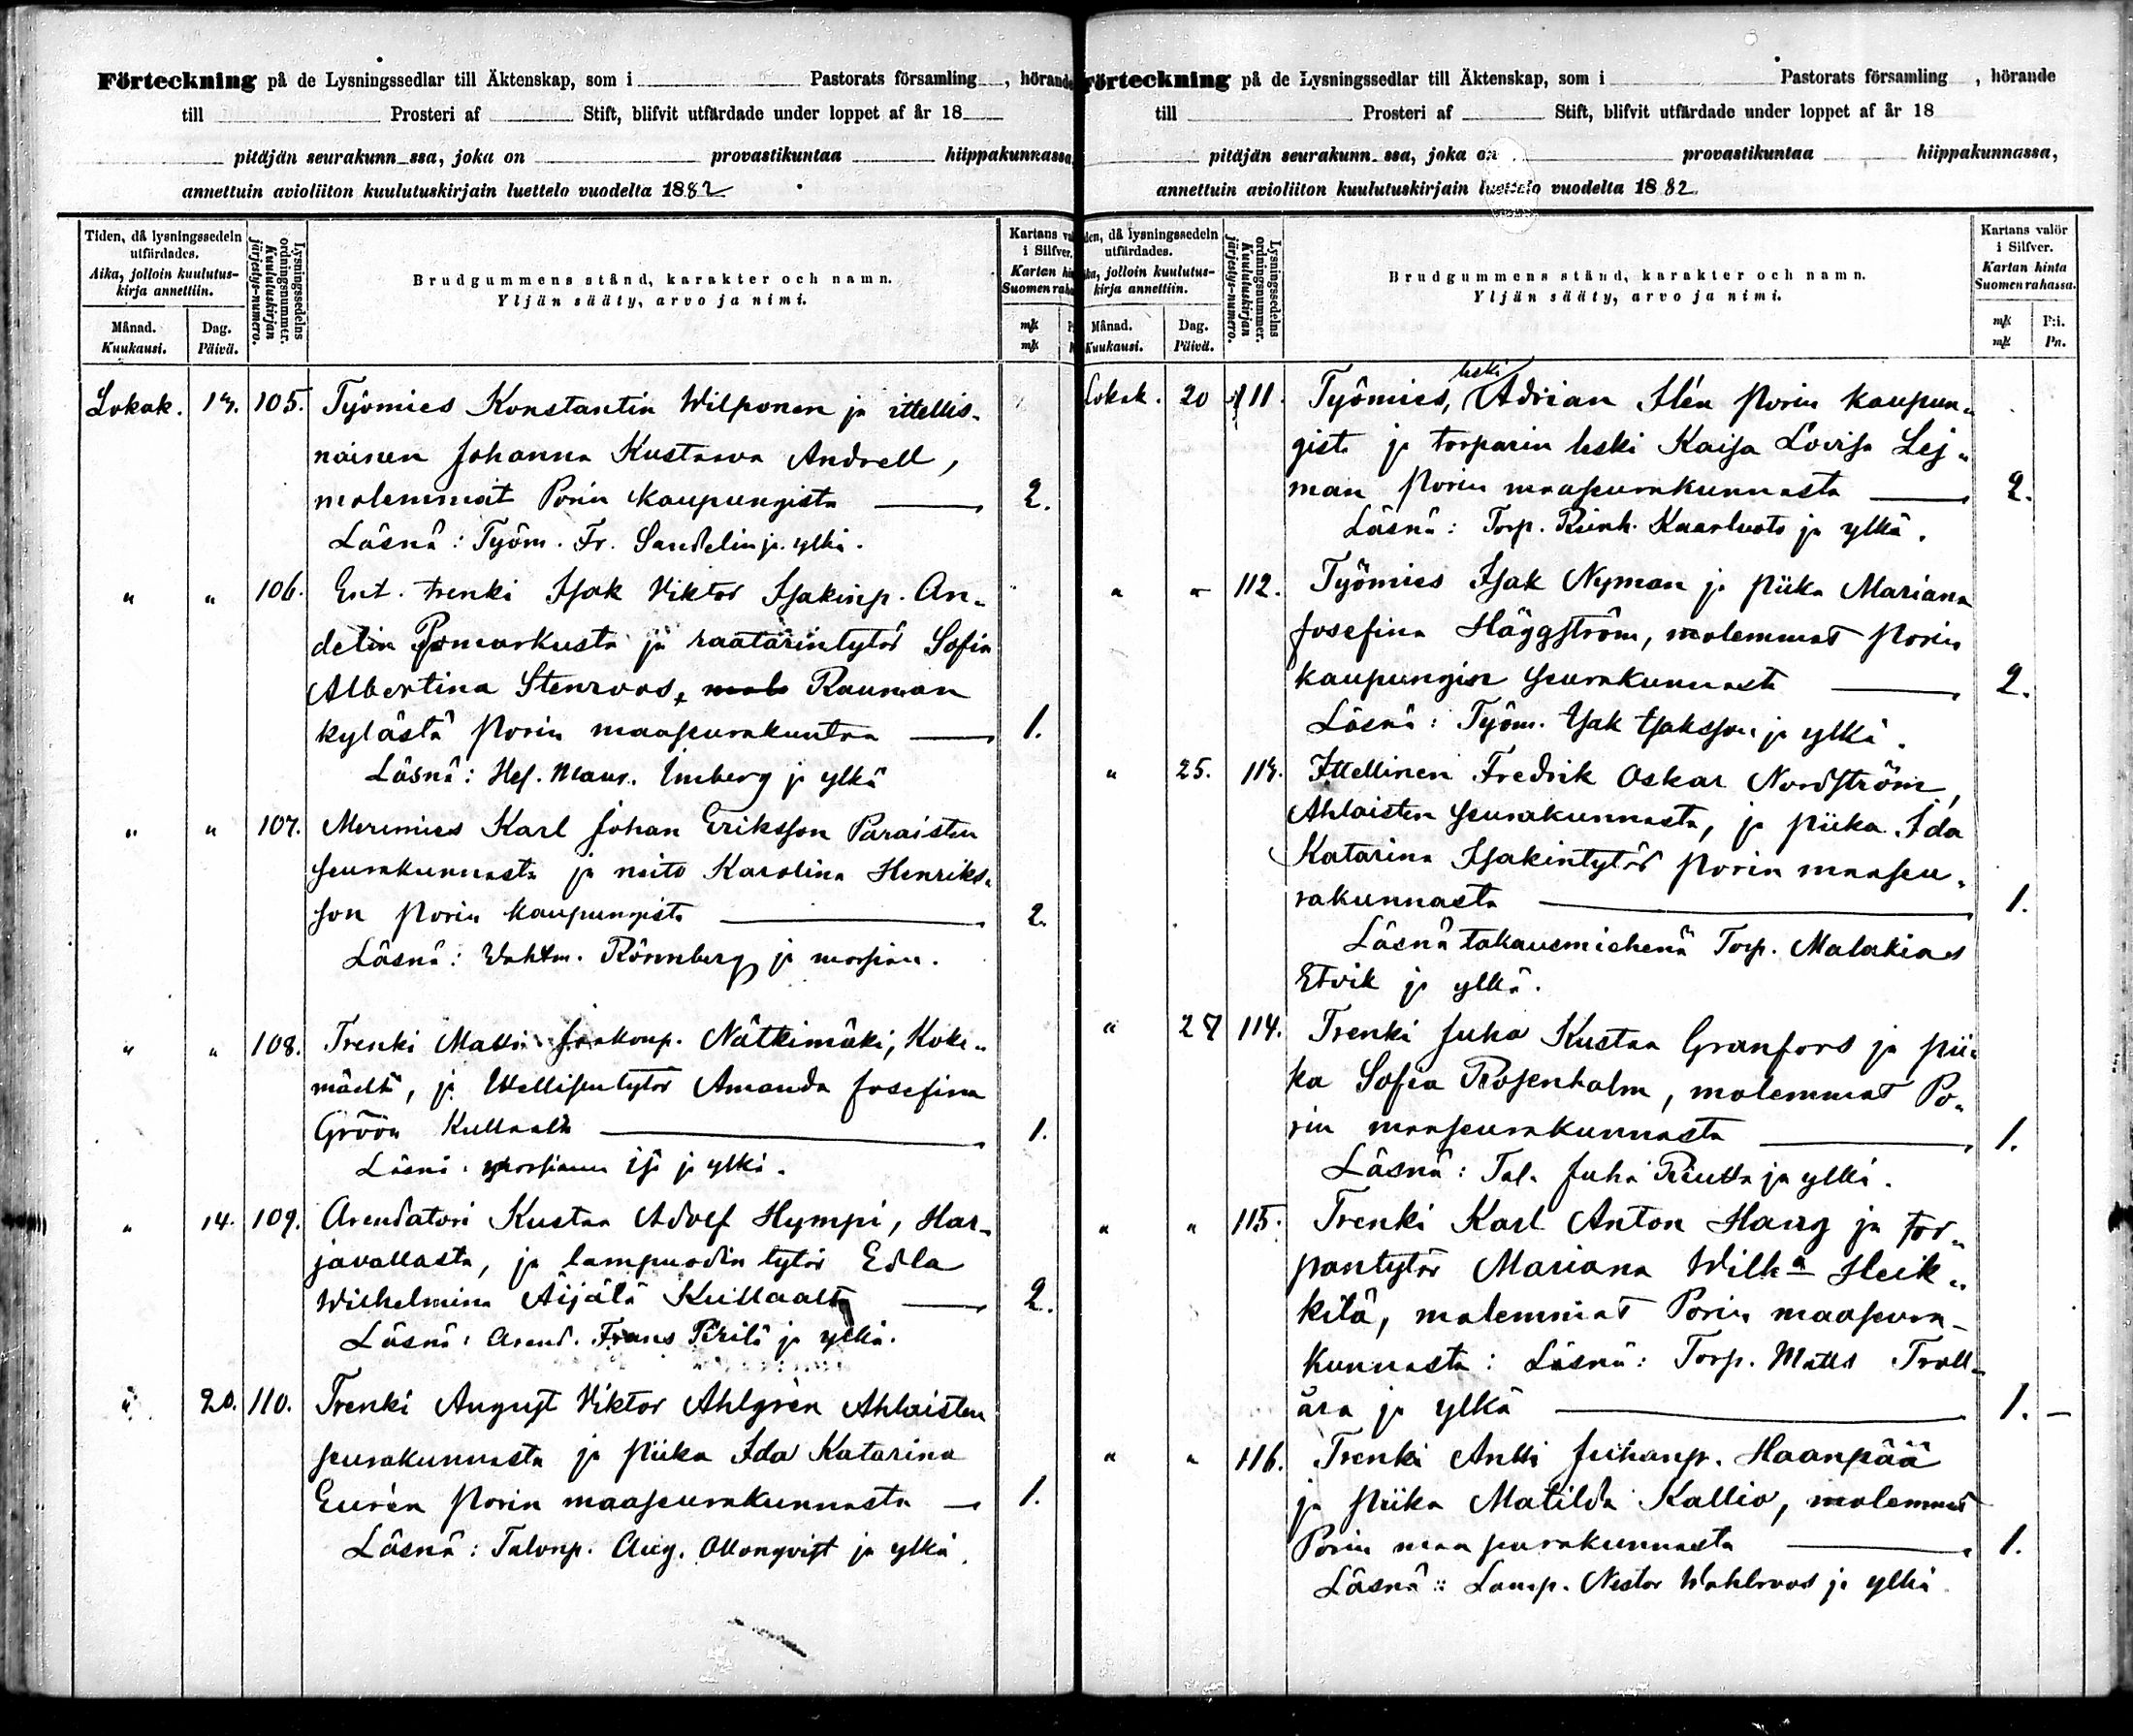 Förteckning på de Lysningssedlar till Äktenskap, som i Pastorats församling, hörande
till Prosteri af Stift, blifvit utfärdade under loppet af år 18
pitäjän seurakunn ssa, joka on provastikuntaa hiippakunnassa
annettuin avioliiton kuulutuskirjain luettelo vuodelta 1882
Tiden, då lysningssedeln utfärdades.
Aika, jolloin kuulutus-kirja annettiin.
Månad. Kuukausi.
Dag. Päivä.
Lysningssedelns ordningsnummer.
Kuulutuskirjan järjestys-numero.
Brudgummens stånd, karakter och namn.
Yljän sääty, arvo ja nimi.
Kartans
i Silfver.
Kartan
Suomen
mk
mk
Lokak. 13. 105. Työmies Konstantin Wilponen ja ittellis-
nainen Johanna Kustaava Andrell,
molemmat Porin kaupungista 2.
Läsnä: Työm. Fr. Sandelin ja ylkä.
" " 106. Ent. trenki Isak Viktor Isakinp. An-
delin Pomarkusta ja raatarintytär Sofia
Albertina Stenroos, Rauman
kylästä Porin maaseurakuntaa 1.
Läsnä: Maur. Imberg ja ylkä
" " 107. Merimies Karl Johan Eriksson Paraisten
seurakunnasta ja neito Karolina Henriks-
son Porin kaupungista 2.
Läsnä: Wahtm. Rönnberg ja morsian.
" " 108. Trenki Matti Jaakonp. Nätkimäki, Koke-
mäeltä, ja Ittellisentytär Amanda Josefina
Gröön Kullaalta 1.
Läsnä: morsiamen isä ja ylkä.
" 14. 109. Arendatori Kustaa Adolf Hympi, Har-
javallasta, ja lampuodin tytär Edla
Wilhelmina Äijälä Kullaalta 2.
Läsnä: Arend. Frans Pirilä ja ylkä.
" 20. 110. Trenki August Viktor Ahlgrén Ahlaisten
seurakunnasta ja piika Ida Katarina
Eurén Porin maaseurakunnasta 1.
Läsnä: Talonp. Aug. Ollonqvist ja ylkä.
Förteckning på de Lysningssedlar till Äktenskap, som i Pastorats församling, hörande
till Prosteri af Stift, blifvit utfärdade under loppet af år 18
pitäjän seurakunn ssa, joka on provastikuntaa hiippakunnassa,
annettuin avioliiton kuulutuskirjain luettelo vuodelta 1882.
då lysningssedeln utfärdades.
jolloin kuulutus-kirja annettiin.
Månad. Kuukausi.
Dag. Päivä.
Lysningssedelns ordningsnummer.
Kuulutuskirjan järjestys-numero.
Brudgummens stånd, karakter och namn.
Yljän sääty, arvo ja nimi.
Kartans valör
i Silfver.
Kartan hinta
Suomen rahassa.
mk P:i.
mk Pn.
leski
Lokak. 20 111. Työmies, Adrian Ilén Porin kaupun-
gista ja torparin leski Kaisa Lovisa Lej-
man Porin maaseurakunnasta 2.
Läsnä: Torp. Reinh. Kaarluoto ja ylkä.
" " 112. Työmies Isak Nyman ja piika Mariana
Josefina Häggström, molemmat Porin
kaupungin seurakunnasta 2.
Läsnä: Työm. Isak Isaksson ja ylkä.
" 25. 113. Ittellinen Fredrik Oskar Nordström,
Ahlaisten seurakunnasta, ja piika Ida
Katarina Isakintytär Porin maaseu-
rakunnasta 1.
Läsnä takausmiehenä Torp. Malakias
Etvik ja ylkä.
" 27 114. Trenki Juha Kustaa Granfors ja pii-
ka Sofia Rosenholm, molemmat Po-
rin maaseurakunnasta 1.
Läsnä: Tal. Juha Riutta ja ylkä.
" " 115. Trenki Karl Anton Haog ja tor-
parintytär Mariana Wilh:a Heik-
kilä, molemmat Porin maaseura-
kunnasta: Läsnä: Torp. Matts Troll-
ära ja ylkä 1. —
" " 116. Trenki Antti Juhanp. Haanpää
ja piika Matilda Kallio, molemmat
Porin maaseurakunnasta 1.
Läsnä: Lamp. Nestor Wahlroos ja ylkä